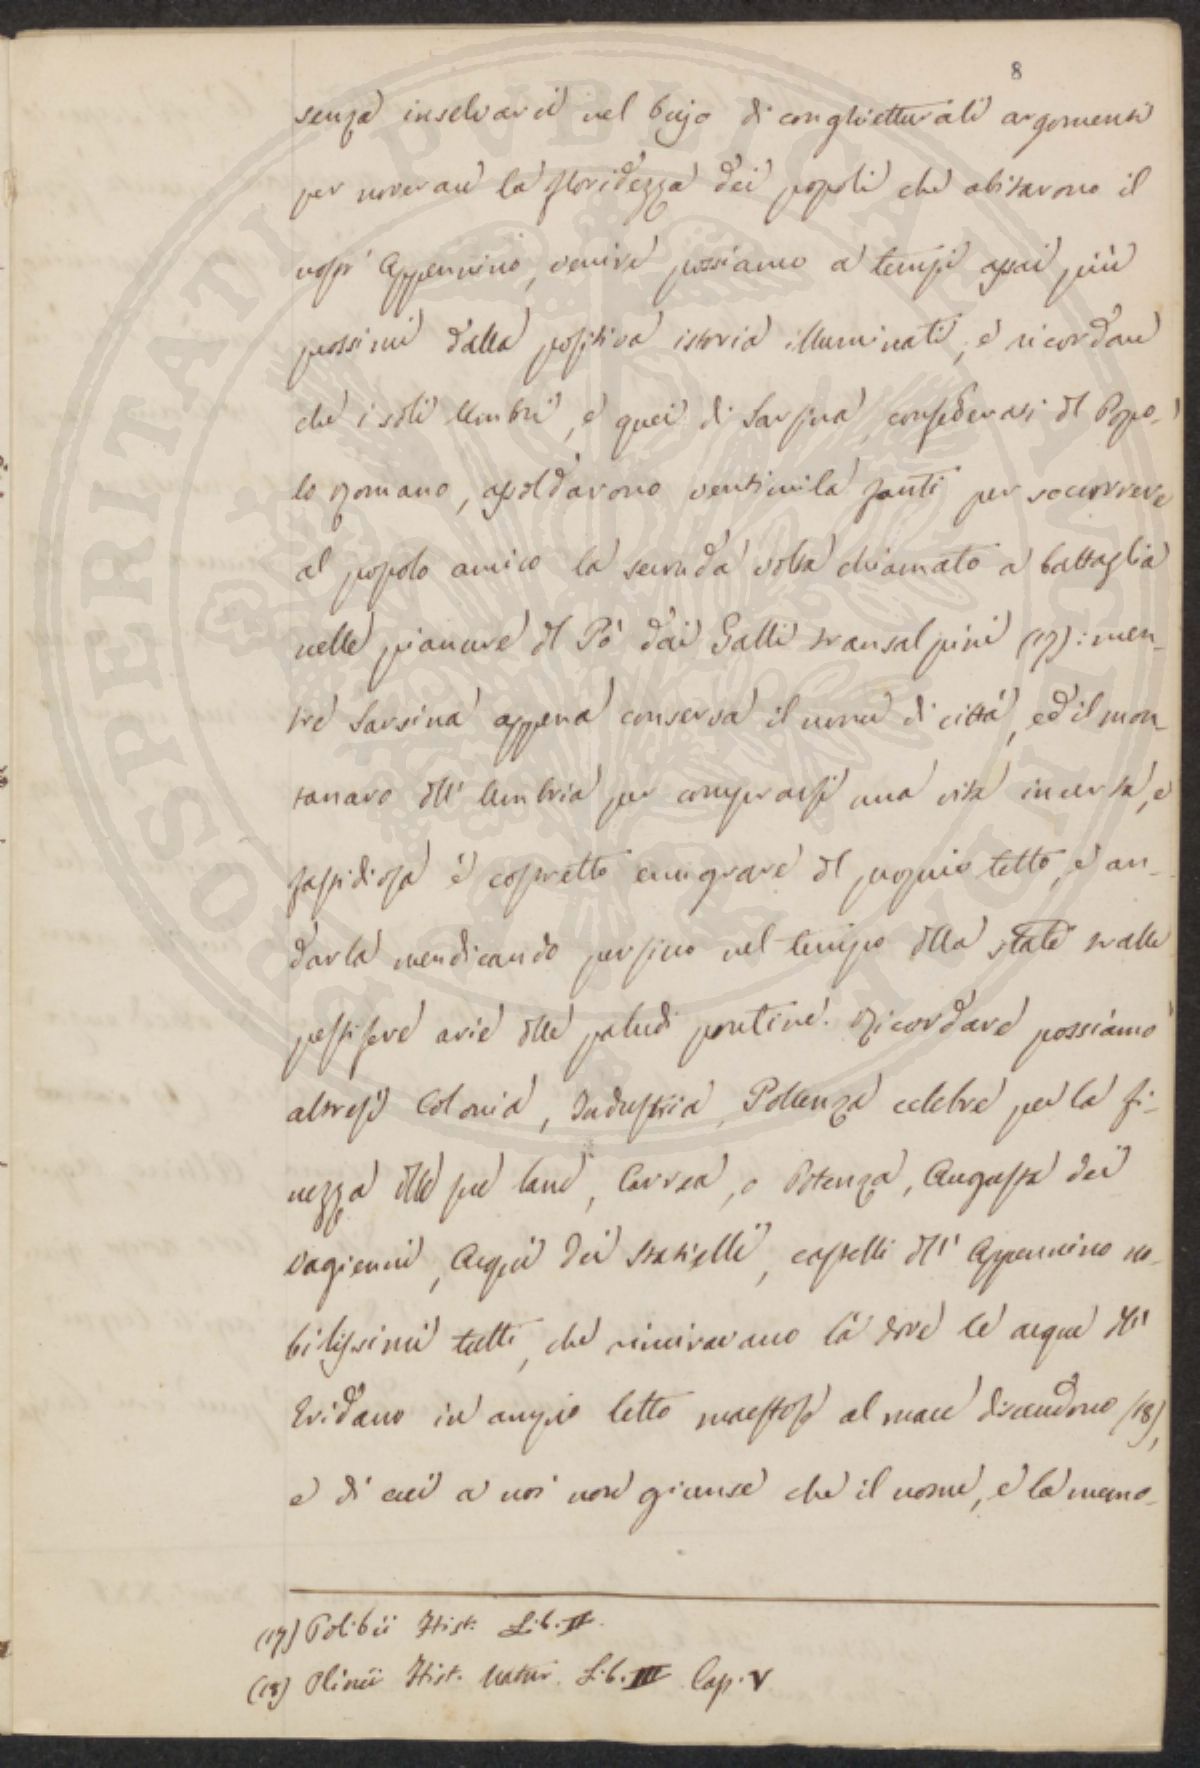 8
senza inselvarci nel bujo di conghietturali argomenti
per noverare la floridezza dei popoli che abitarono il
nostr' Appennino, venire possiamo a tempi assai più
prossimi dalla positiva istoria illuminati, e ricordare
che i soli Umbri, e quei di Sarsina confederati dl Popo-
lo Romano, assoldarono ventimila fanti per soccorrere
al popolo amico la seconda volta chiamato a battaglia
nelle pianure dl Pò dai Galli transalpini (17): men-
tre Sarsina appena conserva il nome di città, ed il mon-
tanaro dll' Umbria per comperarsi una vita incerta, e
fastidiosa è costretto emigrare dl proprio tetto, e an-
darla mendicando persino nel tempo dlla state tralle
pestifere arie dlle paludi pontine. Ricordare possiamo
altresì Colonia, Industria, Pollenza celebre per la fi-
nezza dlle sue lane, Carrea, o Potenza, Augusta dei
Vagienni, Acqui dei Statielli, castelli dll' Appennino no-
bilissimi tutti, che rimiravano là dove le acque dll'
Eridano in ampio letto maestose al mare discendono (18),
e di cui a noi non giunse che il nome, e la memo-
(17) Polibii Hist. Lib. II.
(18) Plinii Hist. Natur. Lib. III Cap. V
POSPERITATI PVBLICAE